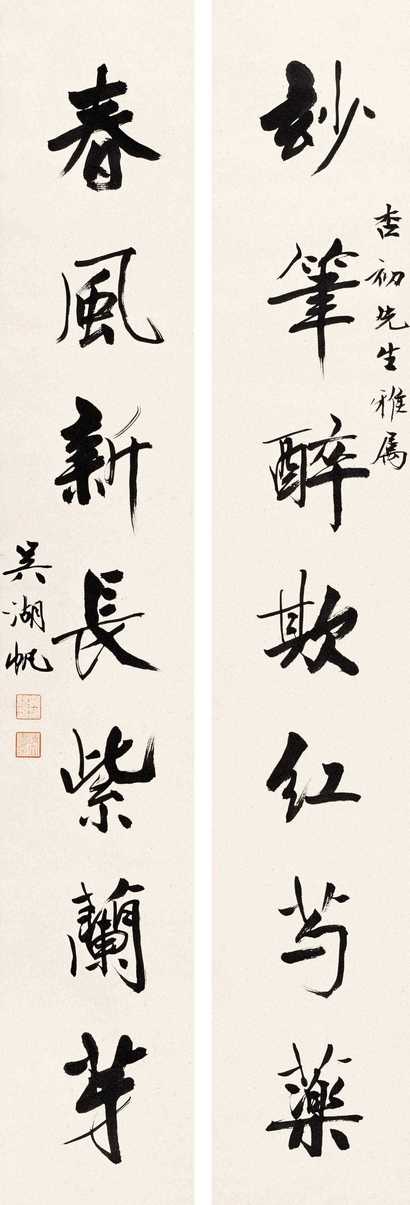 杏初先生雅属
玅筆醉欺红芍藥
春風新長紫蘭芽
吳湖帆